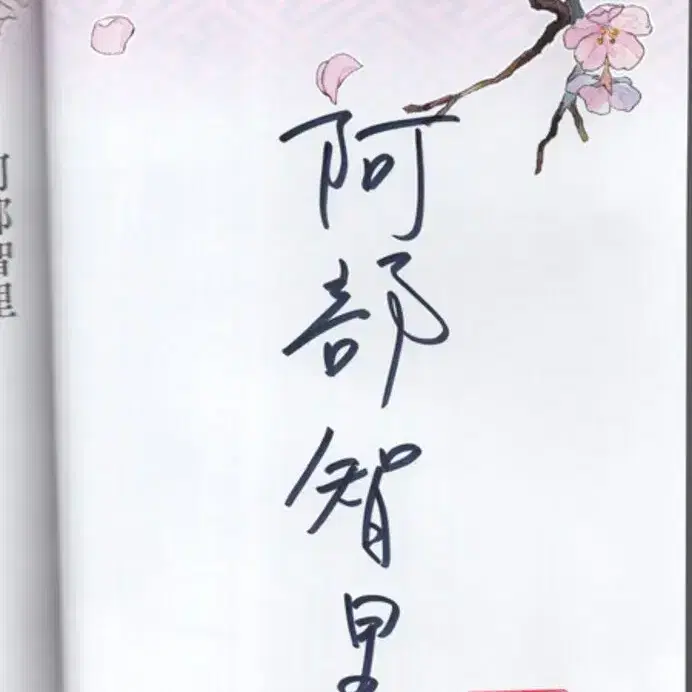 阿部智里
阿部智里